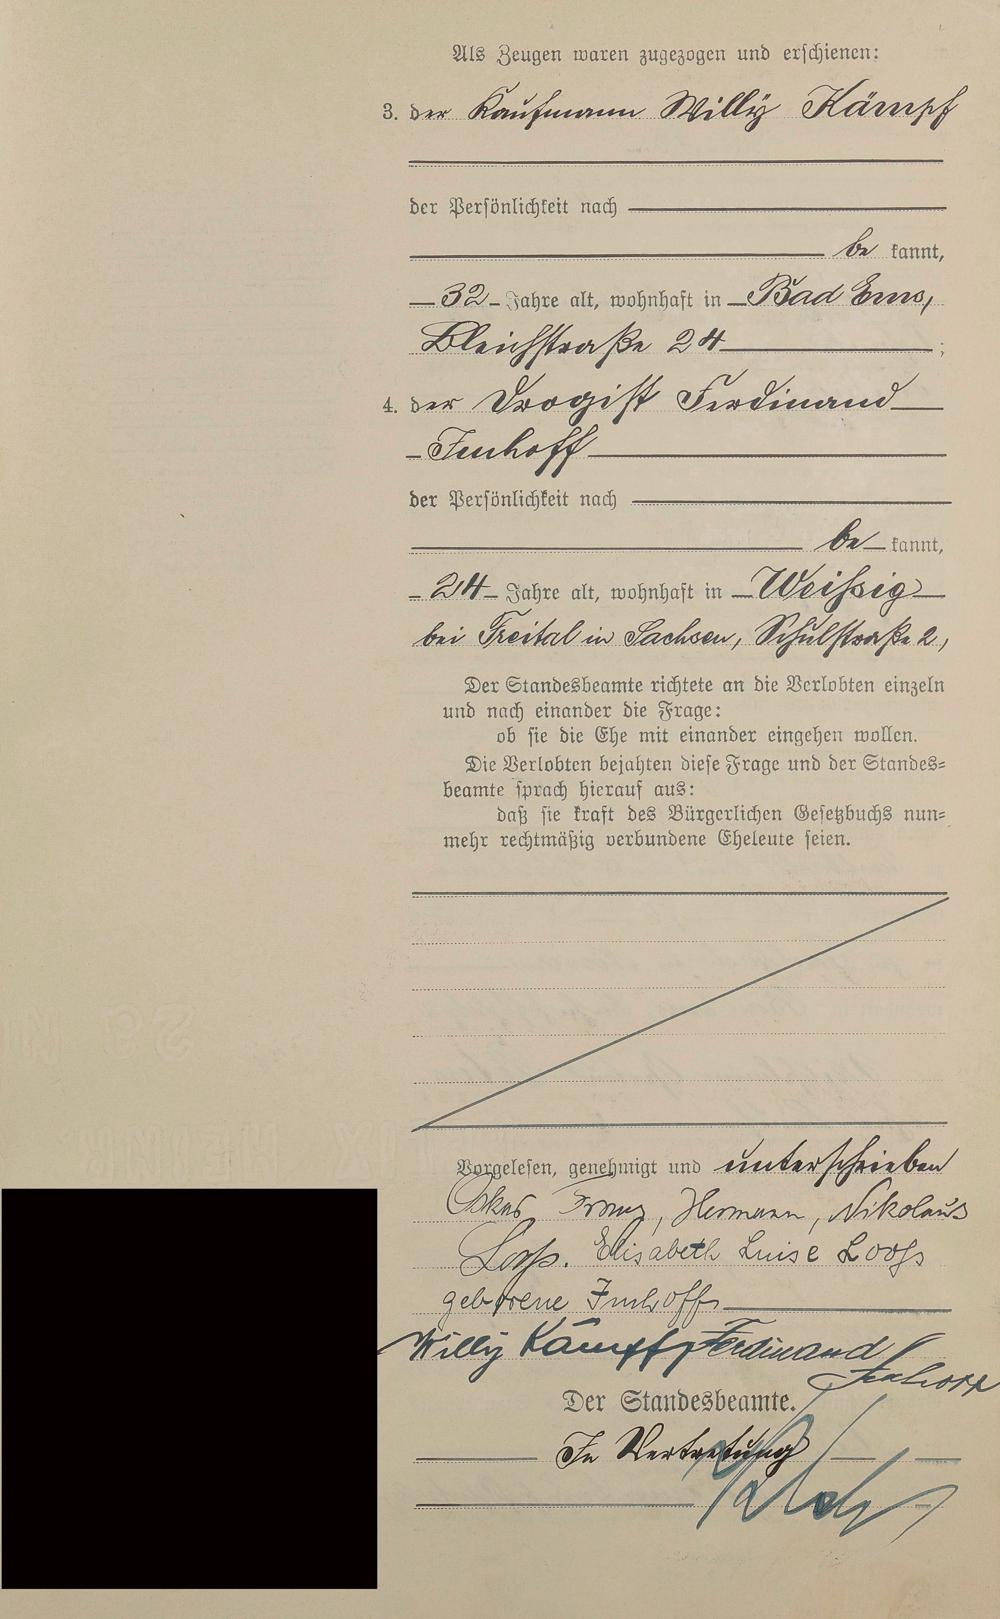 Als Zeugen waren zugezogen und erschienen:
3. der Kaufmann Willy Kämpf
der Persönlichkeit nach
be kannt,
32 Jahre alt, wohnhaft in Bad Ems,
Bleichstraße 24 ;
4. der Drogist Ferdinand
Imhoff
der Persönlichkeit nach
be kannt,
24 Jahre alt, wohnhaft in Weißig
bei Freital in Sachsen, Schulstraße 2,
Der Standesbeamte richtete an die Verlobten einzeln
und nach einander die Frage:
ob sie die Ehe mit einander eingehen wollen.
Die Verlobten bejahten diese Frage und der Standes=
beamte sprach hierauf aus:
daß sie kraft des Bürgerlichen Gesetzbuchs nun=
mehr rechtmäßig verbundene Eheleute seien.
Vorgelesen, genehmigt und unterschrieben
Oskar Franz, Hermann, Nikolaus
Loos. Elisabeth Luise Loos
geborene Imhoff
Willy Kämpf Ferdinand
Imhoff
Der Standesbeamte.
In Vertretung